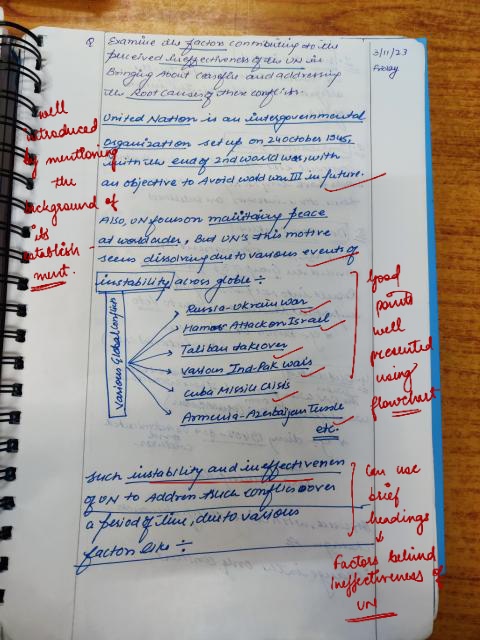 Q Examine the factors contributing to the
perceived ineffectiveness of the UN in
Bringing About ceasefire and addressing
the Root causes of these conflicts.
3/11/23
Friday
United Nation is an intergovernmental
organization set up on 24 october 1945,
with the end of 2nd world war, with
an objective to Avoid world war III in future.
well
introduced
by mentioning
the
background of
its
establish-
ment.
Also, UN focus on maintaing peace
at world order, But UN's this motive
seems dissolving due to various events of
instability across globe ÷
Various Global Conflicts
Russia-Ukrain war
Hamas Attack on Israel
Taliban takeover
various Ind-Pak wars
Cuba Missile Crisis
Armenia-Azerbaijan Tussle
etc.
Good
points
well
presented
using
flowchart
such instability and ineffectiveness
of UN to Address such conflicts over
a period of time, due to various
factors like ÷
Can use
brief
headings
↓
Factors behind
Ineffectiveness of
UN